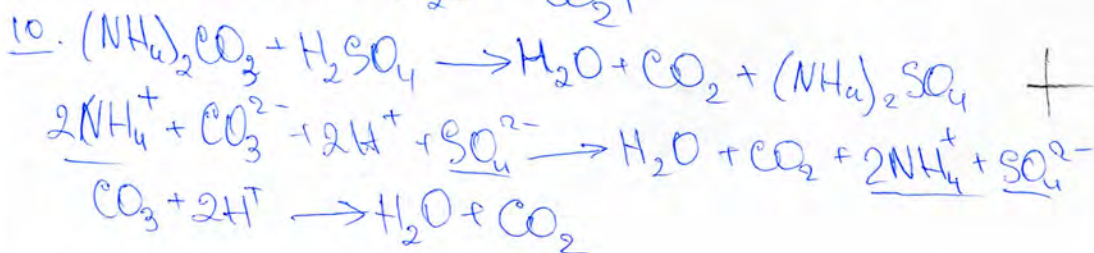 CO₂↑
10. (NH₄)₂CO₃ + H₂SO₄ ⟶ H₂O + CO₂ + (NH₄)₂SO₄ +
2NH₄⁺ + CO₃²⁻ + 2H⁺ + SO₄²⁻ ⟶ H₂O + CO₂ + 2NH₄⁺ + SO₄²⁻
CO₃ + 2H⁺ ⟶ H₂O + CO₂